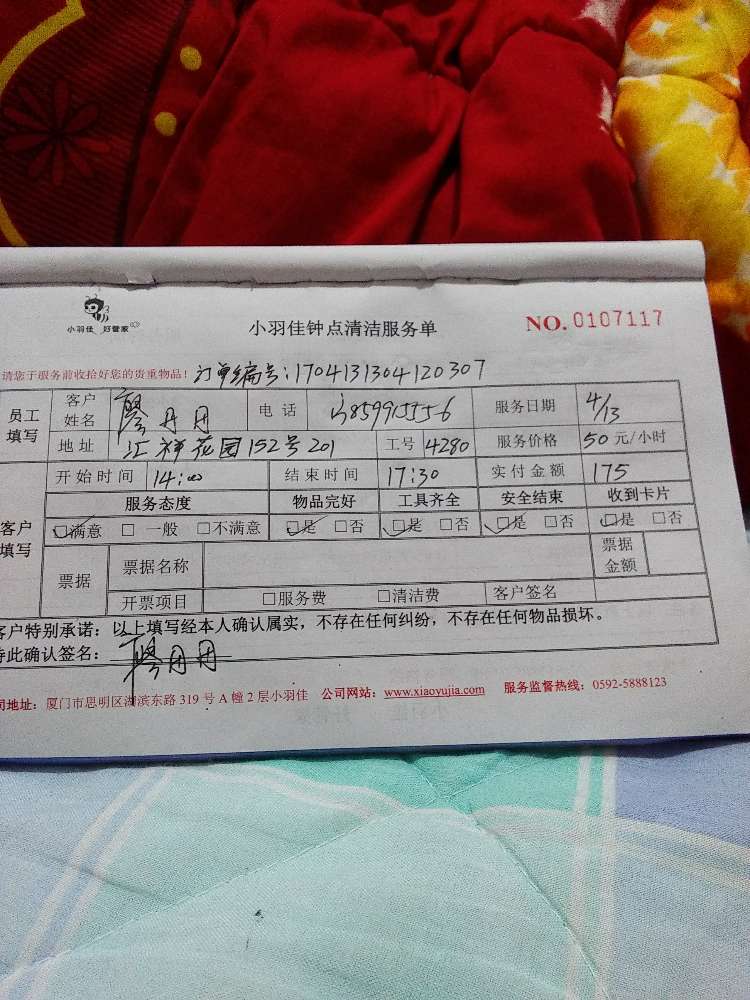 小羽佳 好管家
小羽佳钟点清洁服务单
NO. 0107117
请您于服务前收拾好您的贵重物品! 订单编号:1704131304120307
员工填写 客户姓名 廖丹丹 电话 服务日期 4/13
地址 汇祥花园152号201 工号 4280 服务价格 50元/小时
开始时间 14:00 结束时间 17:30 实付金额 175
客户填写 服务态度 物品完好 工具齐全 安全结束 收到卡片
□满意 □一般 □不满意 □是 □否 □是 □否 □是 □否 □是 □否
票据 票据名称 票据金额
开票项目 □服务费 □清洁费 客户签名
客户特别承诺:以上填写经本人确认属实,不存在任何纠纷,不存在任何物品损坏。
特此确认签名: 廖丹丹
司地址:厦门市思明区湖滨东路319号A幢2层小羽佳 公司网站:www.xiaoyujia.com 服务监督热线:0592-5888123